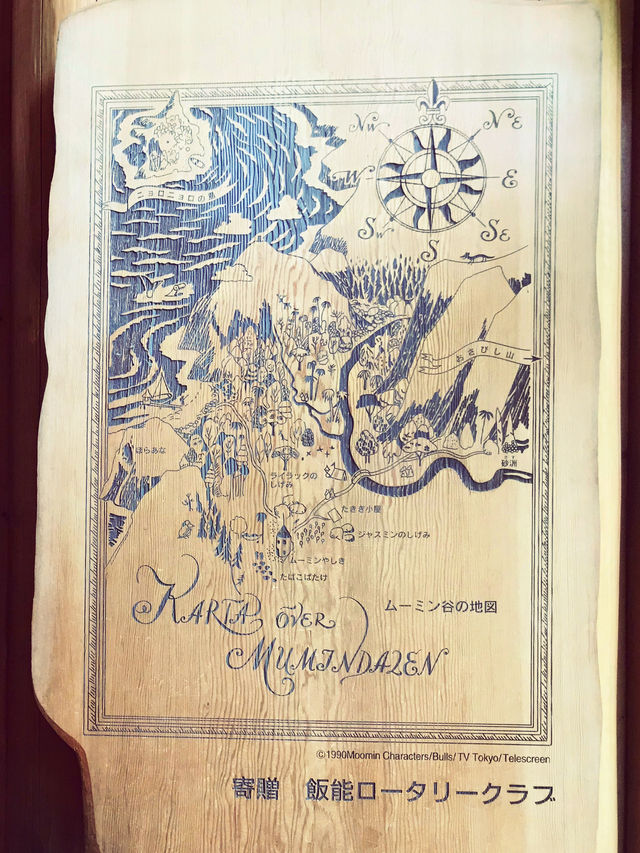 NW
NE
W
E
SW
SE
S
ニョロニョロの島
おさびし山
ほらあな
砂洲
ライラックの
しげみ
たきぎ小屋
ジャスミンのしげみ
ムーミンやしき
たばこばたけ
KARTA ÖVER
ムーミン谷の地図
MUMINDALEN
©1990Moomin Characters/Bulls/TV Tokyo/Telescreen
寄贈　飯能ロータリークラブ